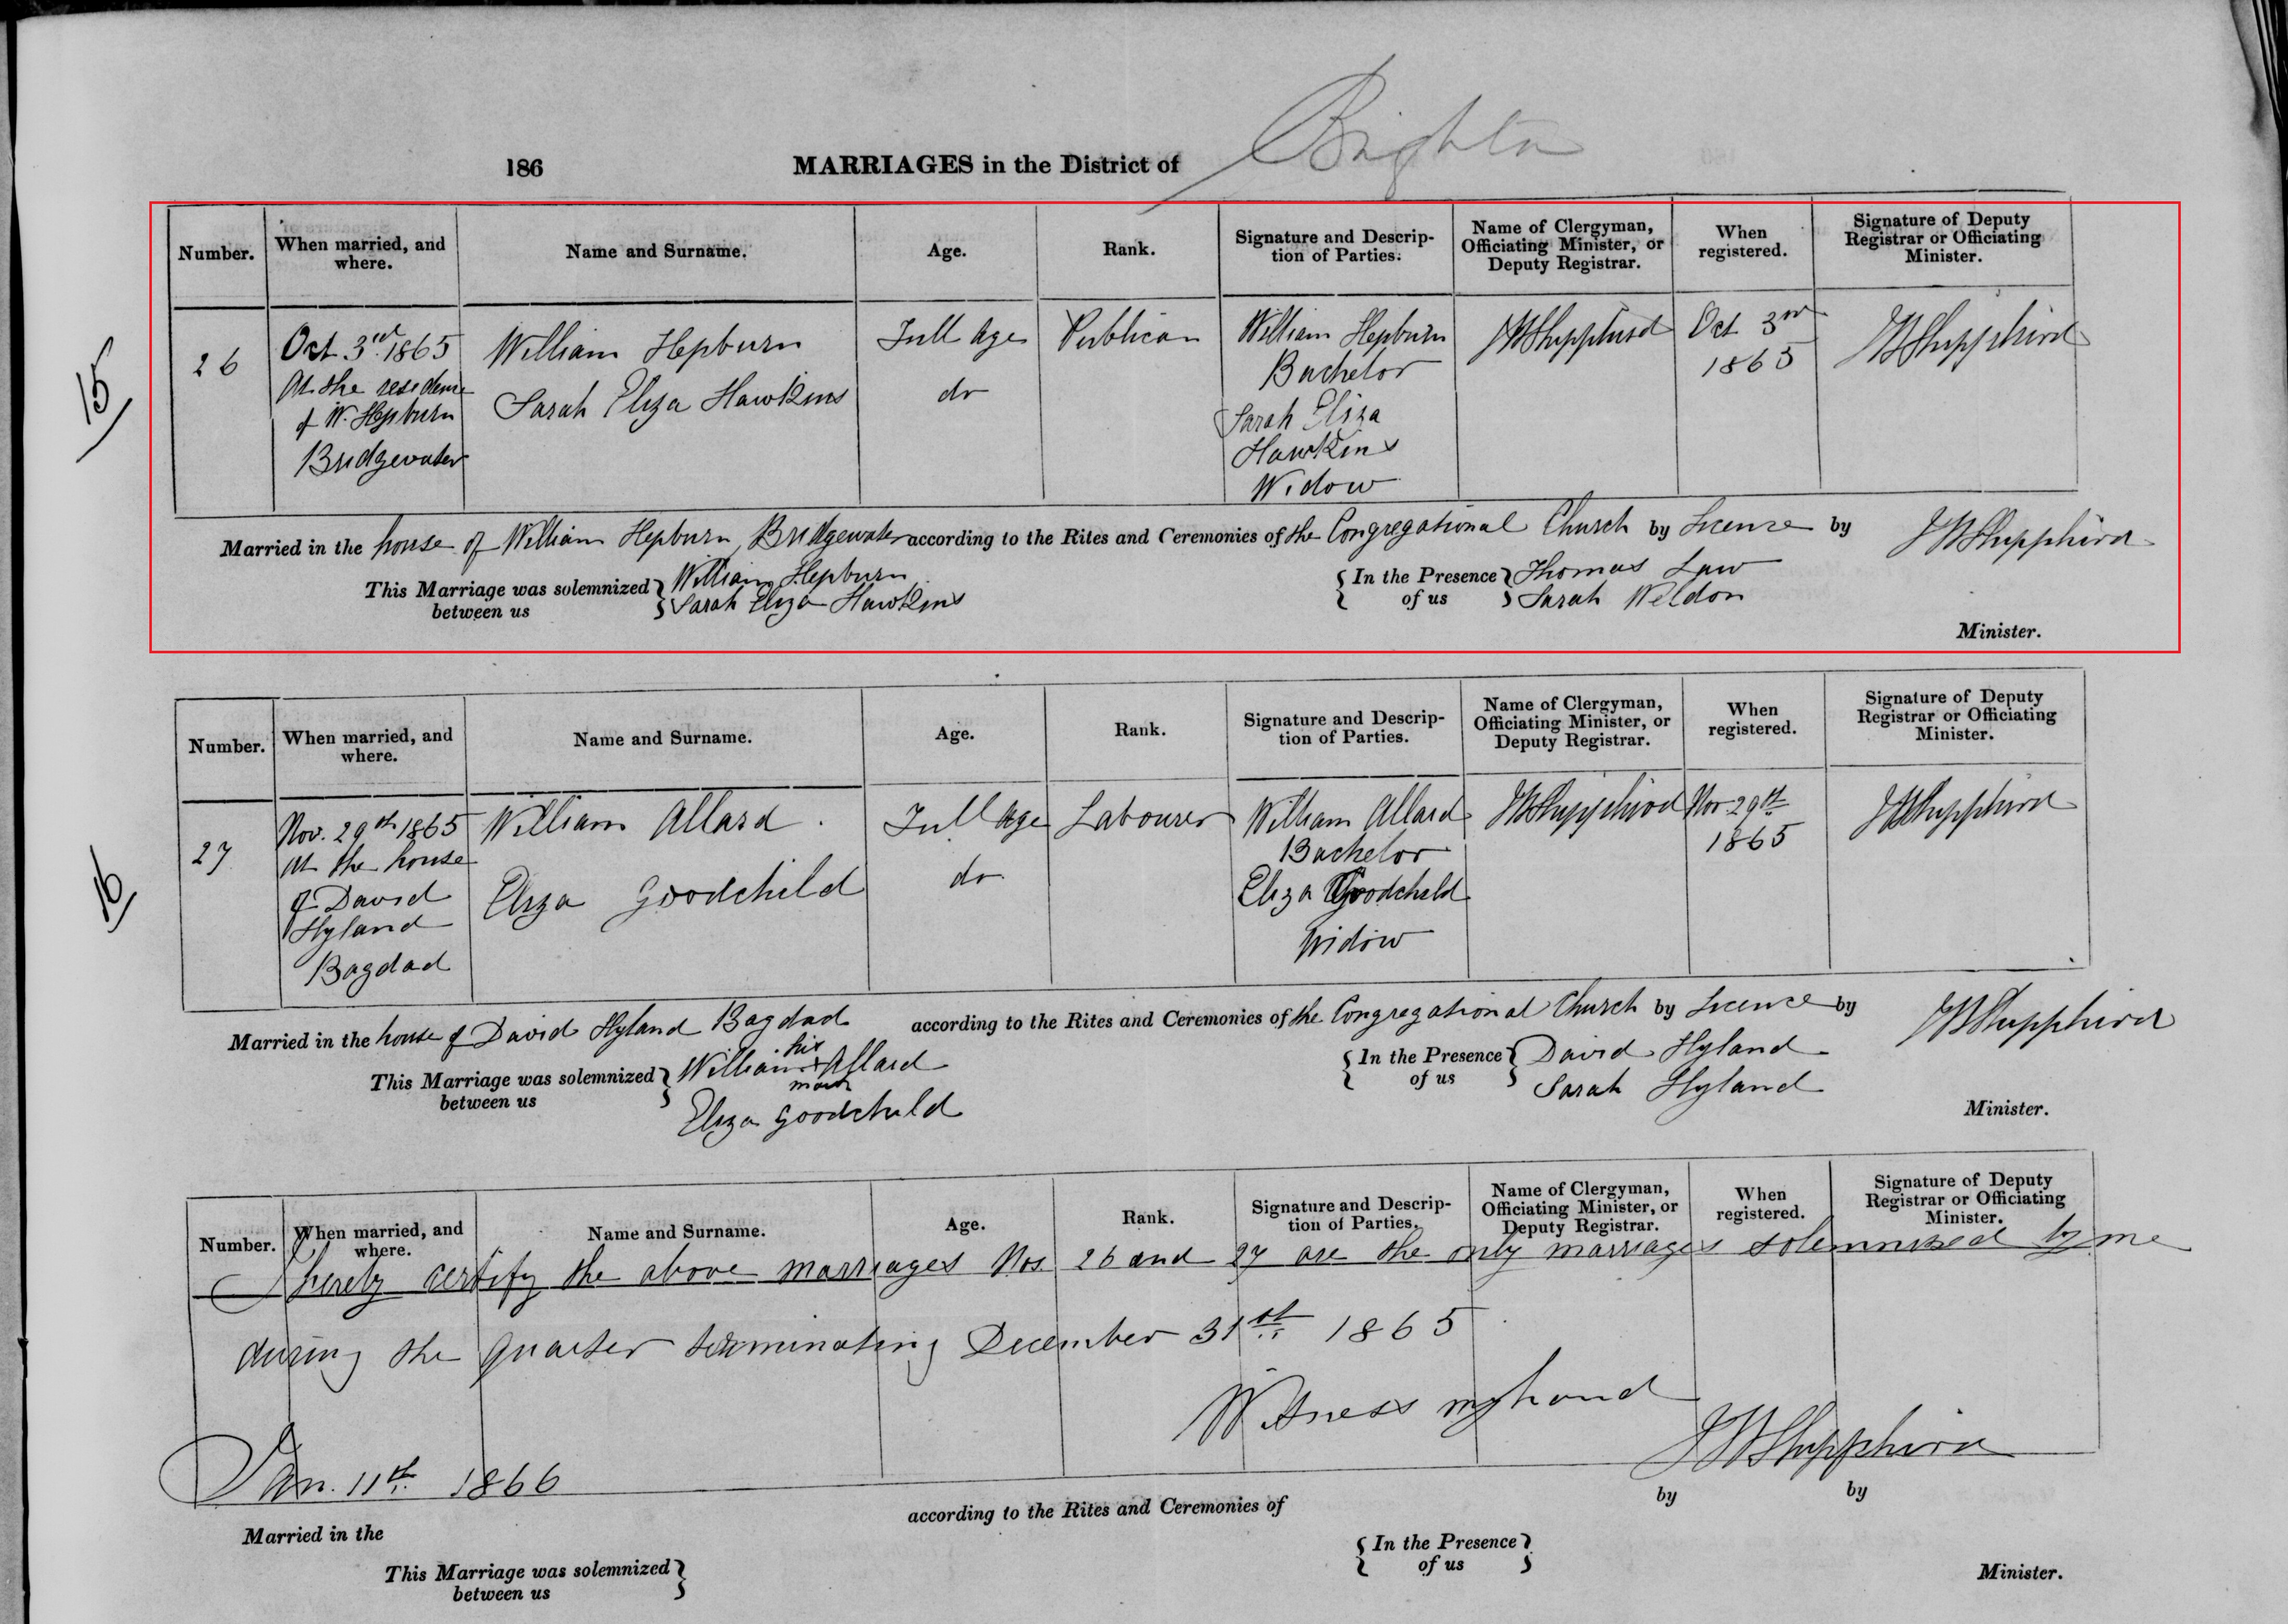 186 MARRIAGES in the District of Brighton
Number. When married, and where. Name and Surname. Age. Rank. Signature and Descrip-tion of Parties. Name of Clergyman, Officiating Minister, or Deputy Registrar. When registered. Signature of Deputy Registrar or Officiating Minister.
15
26 Oct 3rd 1865 William Hepburn Full Age Publican William Hepburn JW Shepphird Oct 3rd JW Shepphird
At the residence Sarah Eliza Hawkins do Bachelor 1865
of W. Hepburn Sarah Eliza
Bridgewater Hawkins
Widow
Married in the house of William Hepburn, Bridgewater according to the Rites and Ceremonies of the Congregational Church by Licence by JW Shepphird
This Marriage was solemnized between us William Hepburn In the Presence of us Thomas Law
Sarah Eliza Hawkins Sarah Weldon
Minister.
Number. When married, and where. Name and Surname. Age. Rank. Signature and Descrip-tion of Parties. Name of Clergyman, Officiating Minister, or Deputy Registrar. When registered. Signature of Deputy Registrar or Officiating Minister.
16
27 Nov. 29th 1865 William Allard Full Age Labourer William Allard JW Shepphird Nov 29th JW Shepphird
At the house Eliza Goodchild do Bachelor 1865
of David Eliza Goodchild
Hyland Widow
Bagdad
Married in the house of David Hyland Bagdad according to the Rites and Ceremonies of the Congregational Church by Licence by JW Shepphird
his
This Marriage was solemnized between us William x Allard In the Presence of us David Hyland
mark
Eliza Goodchild Sarah Hyland
Minister.
Number. When married, and where. Name and Surname. Age. Rank. Signature and Descrip-tion of Parties. Name of Clergyman, Officiating Minister, or Deputy Registrar. When registered. Signature of Deputy Registrar or Officiating Minister.
I hereby certify the above marriages Nos. 26 and 27 are the only marriages solemnized by me
during the quarter terminating December 31st 1865
Witness my hand
Jan. 11th 1866 JW Shepphird
Married in the according to the Rites and Ceremonies of by by
This Marriage was solemnized between us In the Presence of us
Minister.